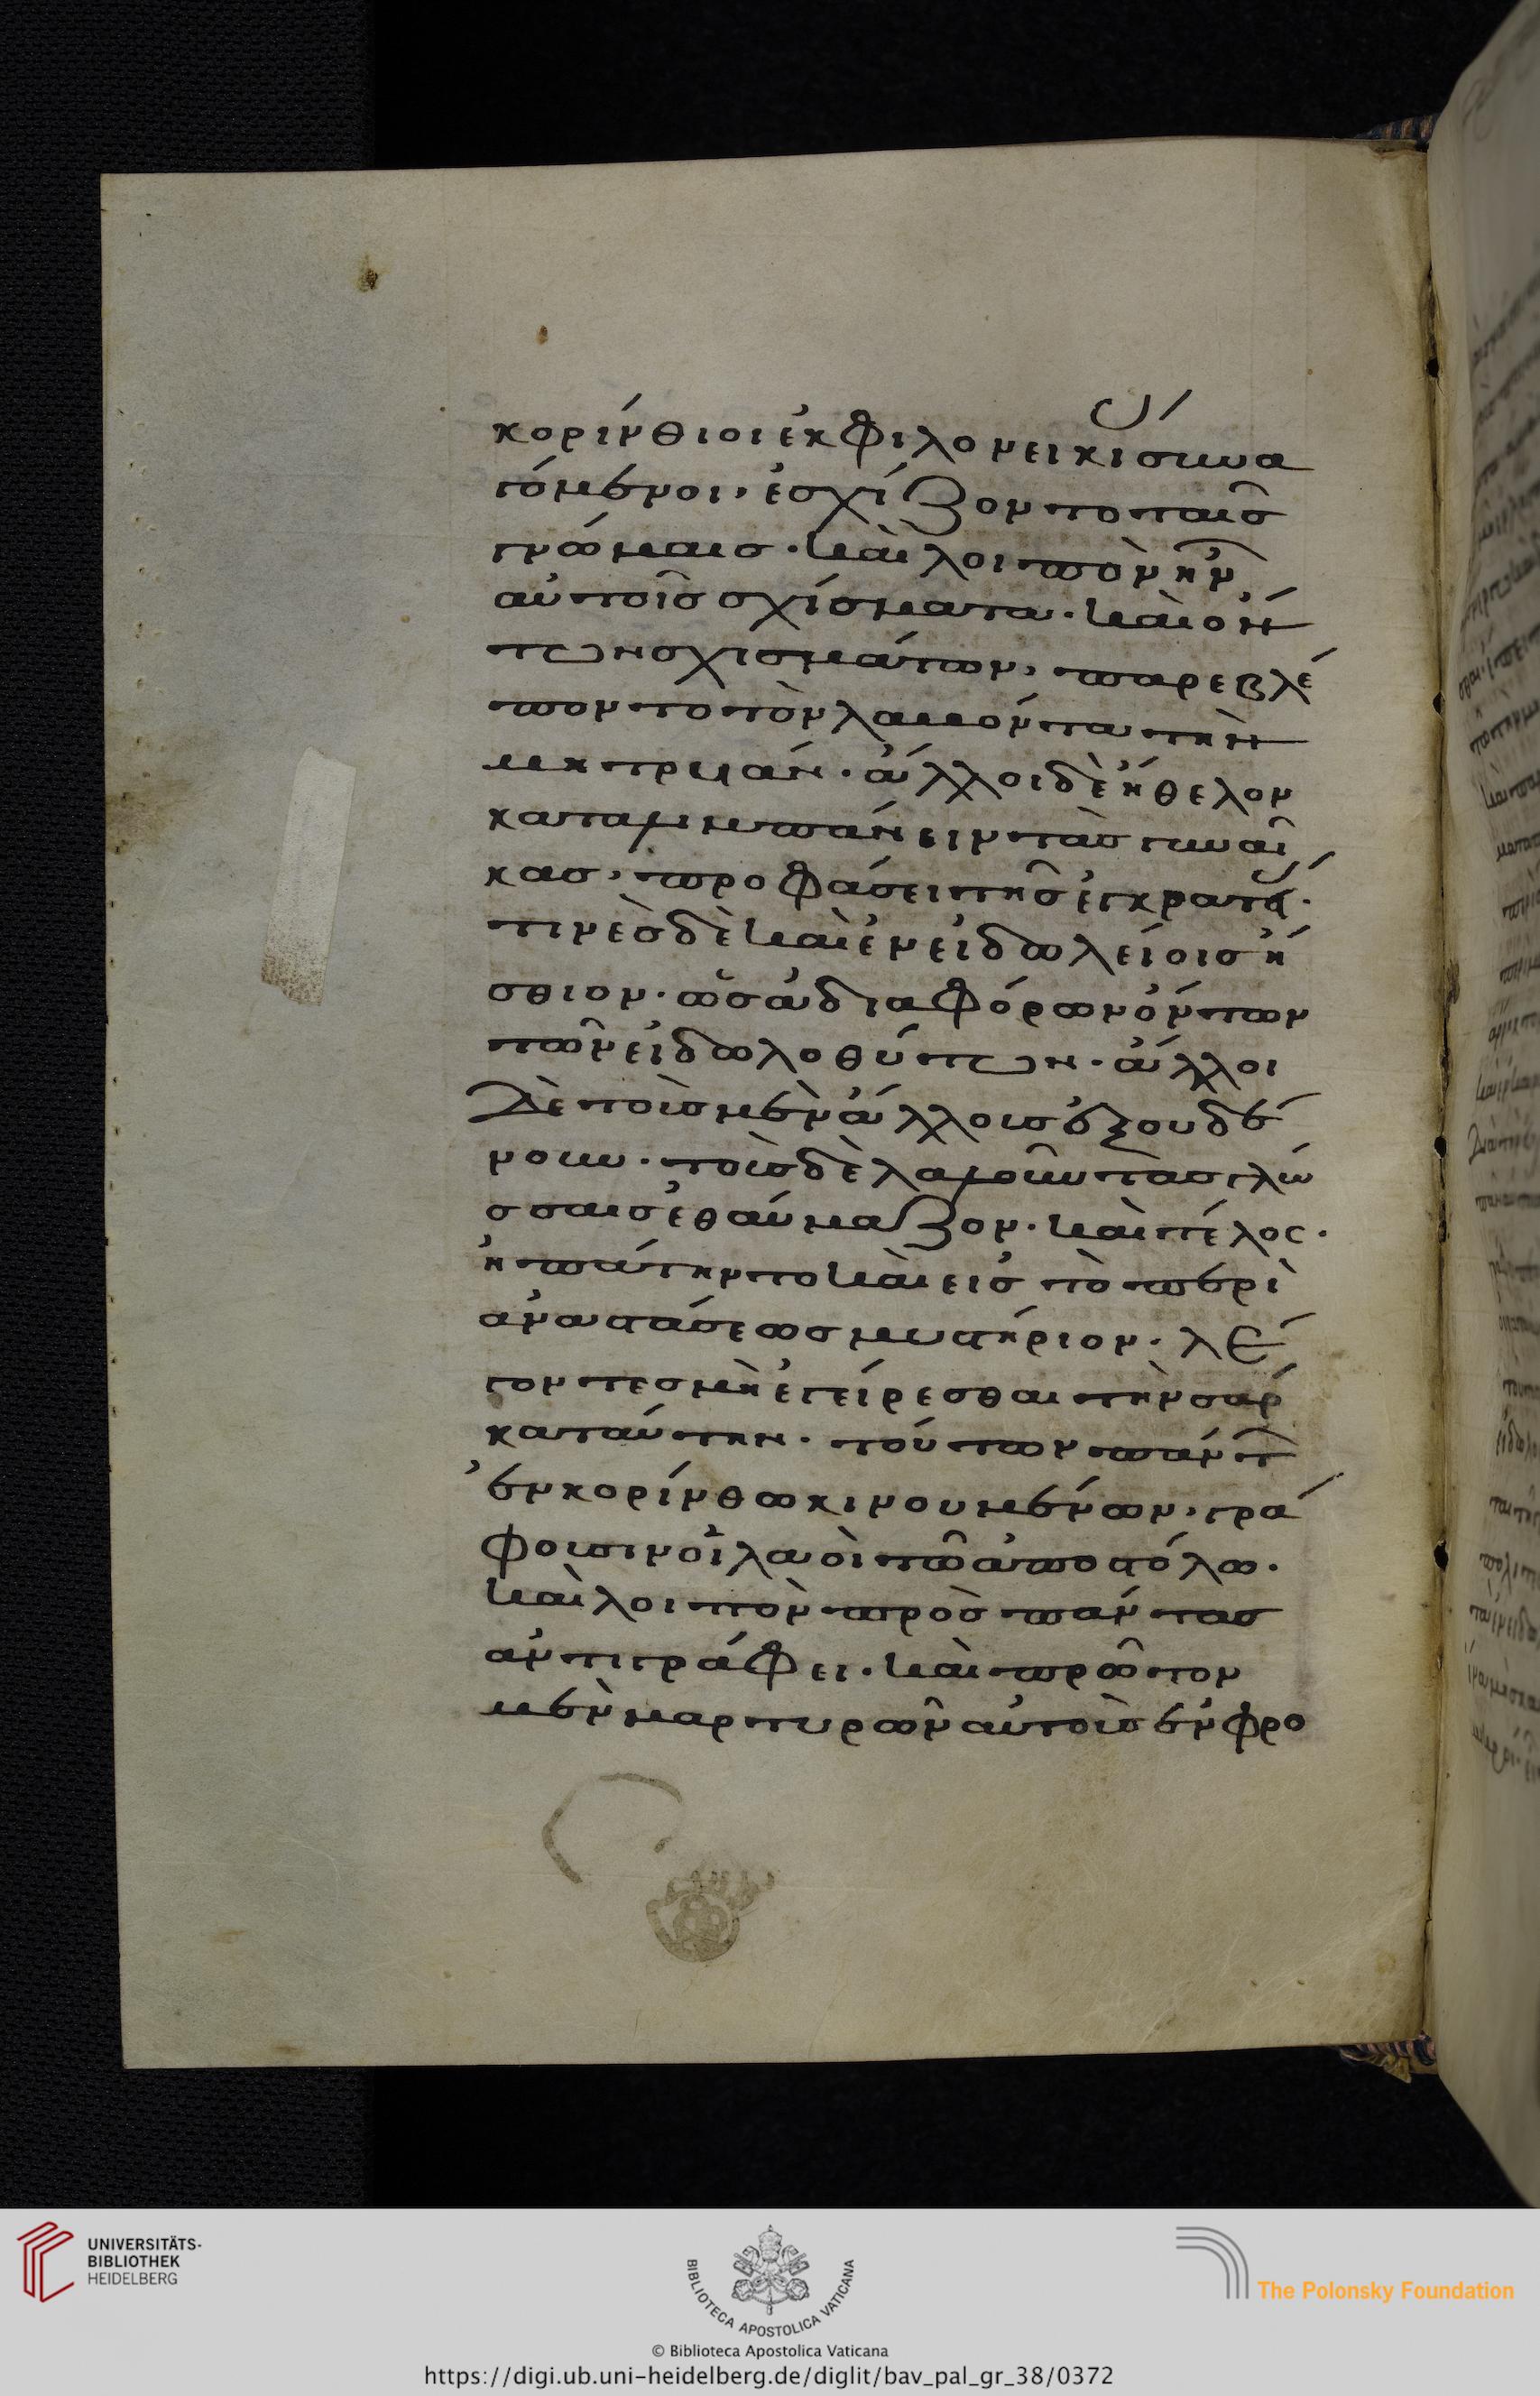 κορίνθιοι ἐκ φιλονεικίας συνα
γόμενοι, ἐσχίζοντο ταῖσ
γνώμαισ· καὶ λοιπὸν ἦν
αὐτοῖσ σχίσματα· καὶ ἐκ
τῶν σχισμάτων, παρεβλέ
ποντο τὸν λαβόντα τὴν
μητρυιάν· ἄλλοι δὲ ἤθελον
καταλιμπάνειν τὰσ γυναῖ
κασ, προφάσει τῆσ ἐγκρατείας·
τινὲσ δὲ καὶ ἐν εἰδωλείοισ ἤ
σθιον· ὡσ ἀδιαφόρων ὄντων
τῶν εἰδωλοθύτων· ἄλλοι
δὲ τοὺσ μὲν ἄλλουσ ἐξουδέ
νουν· τοὺσ δὲ λαλοῦντασ γλώ
σσαισ ἐθαύμαζον· καὶ τέλος·
ἠπάτηντο καὶ εἰσ τὸ περὶ
ἀναστάσεωσ μυστήριον· λέ
γοντεσ μὴ ἐγείρεσθαι τὴν σάρ
κα ταύτην· τούτων πάντων
ἐν κορίνθω κινουμένων, γρά
φουσιν οἱ λαοὶ τῶ ἀποστόλω·
καὶ λοιπὸν πρὸσ πάντασ
ἀντιγράφει· καὶ πρῶτον
μὲν μαρτυρῶν αὐτοῖσ ἐν φρο
UNIVERSITÄTS-
BIBLIOTHEK
HEIDELBERG
BIBLIOTECA APOSTOLICA VATICANA
The Polonsky Foundation
© Biblioteca Apostolica Vaticana
https://digi.ub.uni-heidelberg.de/diglit/bav_pal_gr_38/0372